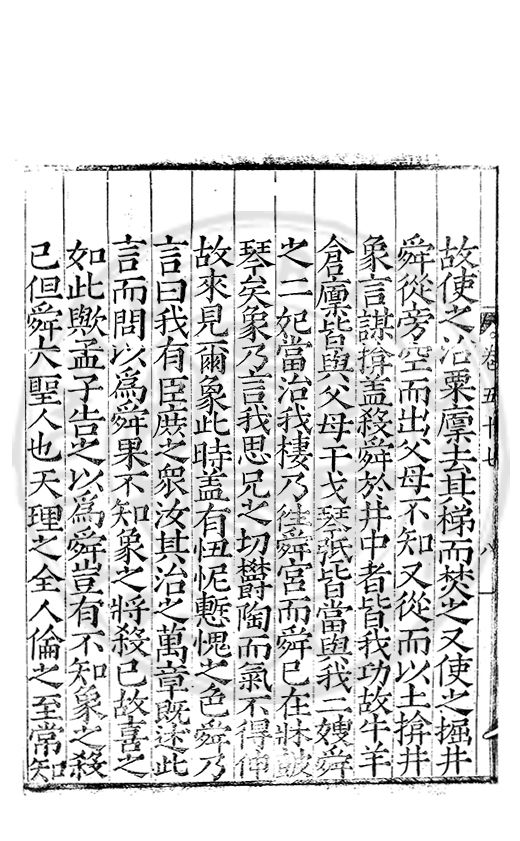 故使之治粟廩去其梯而焚之又使之掘井
舜從旁空而出父母不知又從而以土揜井
象言謀揜蓋殺舜於井中者皆我功故牛羊
倉廩皆與父母干戈琴弤皆當與我二嫂舜
之二妃當治我棲乃往舜宮而舜已在牀鼓
琴矣象乃言我思兄之切欝陶而氣不得伸
故來見爾象此時盖有忸怩慙愧之色舜乃
言曰我有臣庶之衆汝其治之萬章既述此
言而問以爲舜果不知象之將殺已故喜之
如此歟孟子告之以爲舜豈有不知象之殺
己但舜大聖人也天理之全人倫之至常知
卷五十七
八